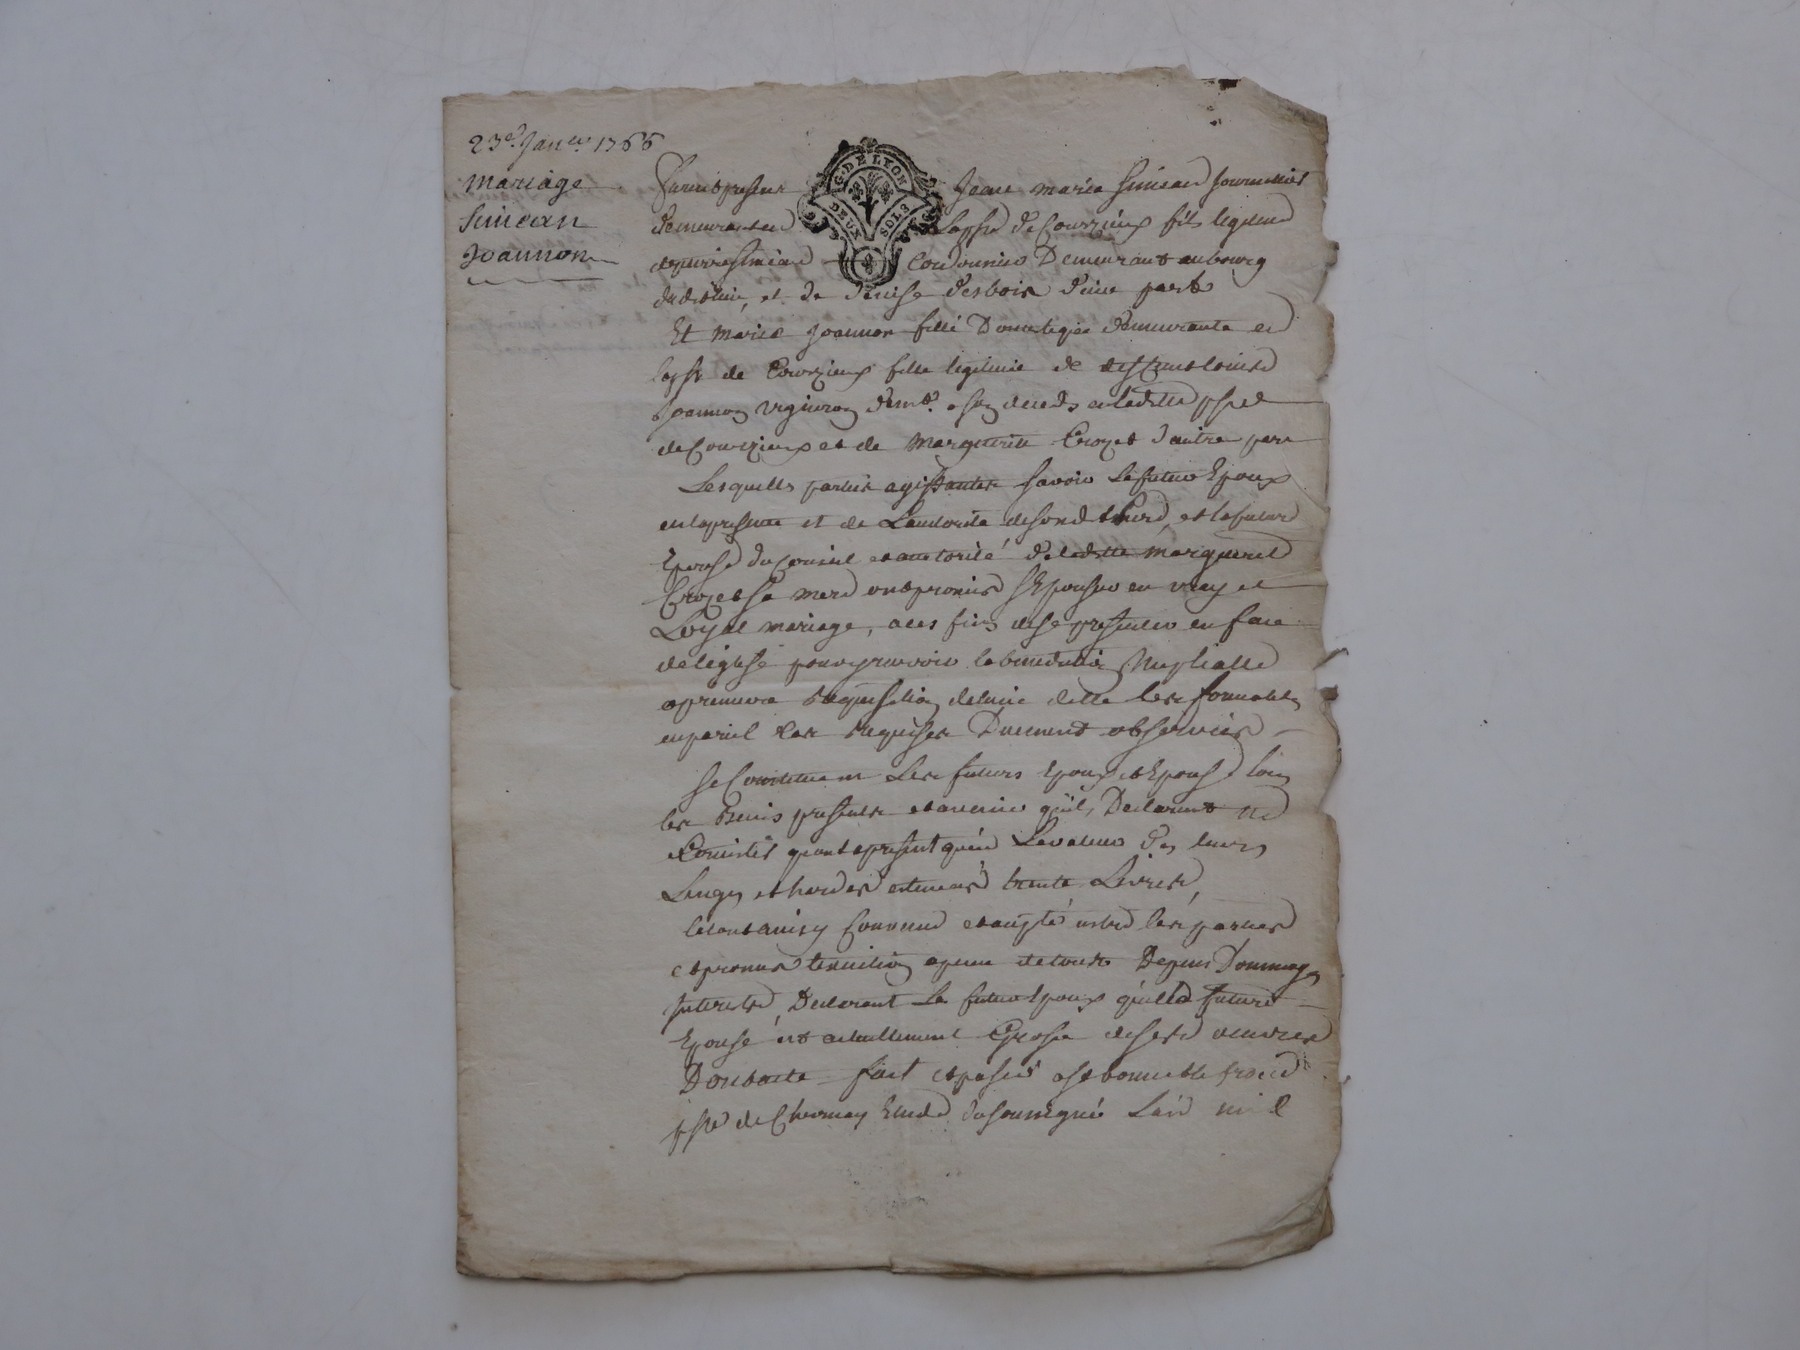 23e Janer 1766
mariage
Simean
Joannon
G. DE LYON
DEUX SOLS
Furent present Jean marie Simean Journalier
demeurant en de Courzieux fils legitime
Cordonnier Demeurant au bourg
et de denise desbois d'une part
Et marie Joannon fille Domestique demeurante en
de Courzieux fille legitime de
Joannon vigneron demt. a son deceds en laditte psse
de Courzieux et de Marguerite Crozet d'autre part
Lesquelles parties agissantes savoir Le futur Epoux
en la presence et de L'autorité de sond et la future
Epouse du Conseil et autorité de laditte marguerite
Crozet sa mere ont promis s'Epouser en vray et
Loyal mariage, a ces fins de se presenter en face
de l'eglise pour y recevoir la benediction Nuptialle
a premiere Requisition de lune delle les formalites
en pareil Cas Requises Duement observées
se Constituent Les futurs Epoux et Epouse tous
les Biens presents et avenir quils Declarent ne
Consister quant a present quen La valeur de leurs
Linges et hardes estimées trente Livres
le tout ainsy Convenu et accepté entre les parties
et promis tenir a peine de tous Depens Dommages
Interests, Declarant Le futur Epoux que la future
Epouse est actuellement Grosse de ses oeuvres
Dont acte fait et passé
psse de Chevinay Etude du soussigné L'an mil